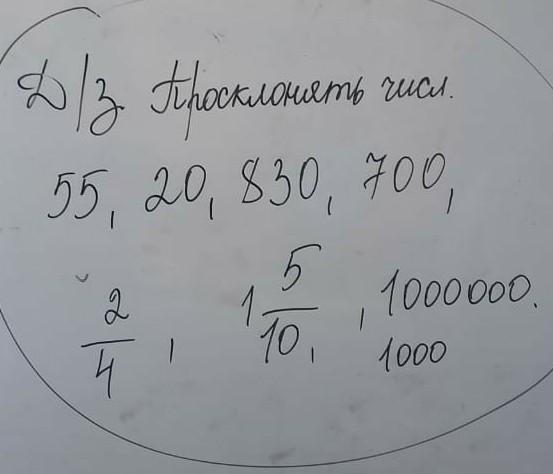 Д/з Просклонять числ.
55, 20, 830, 700,
2/4, 1 5/10, , 1000000.
1000